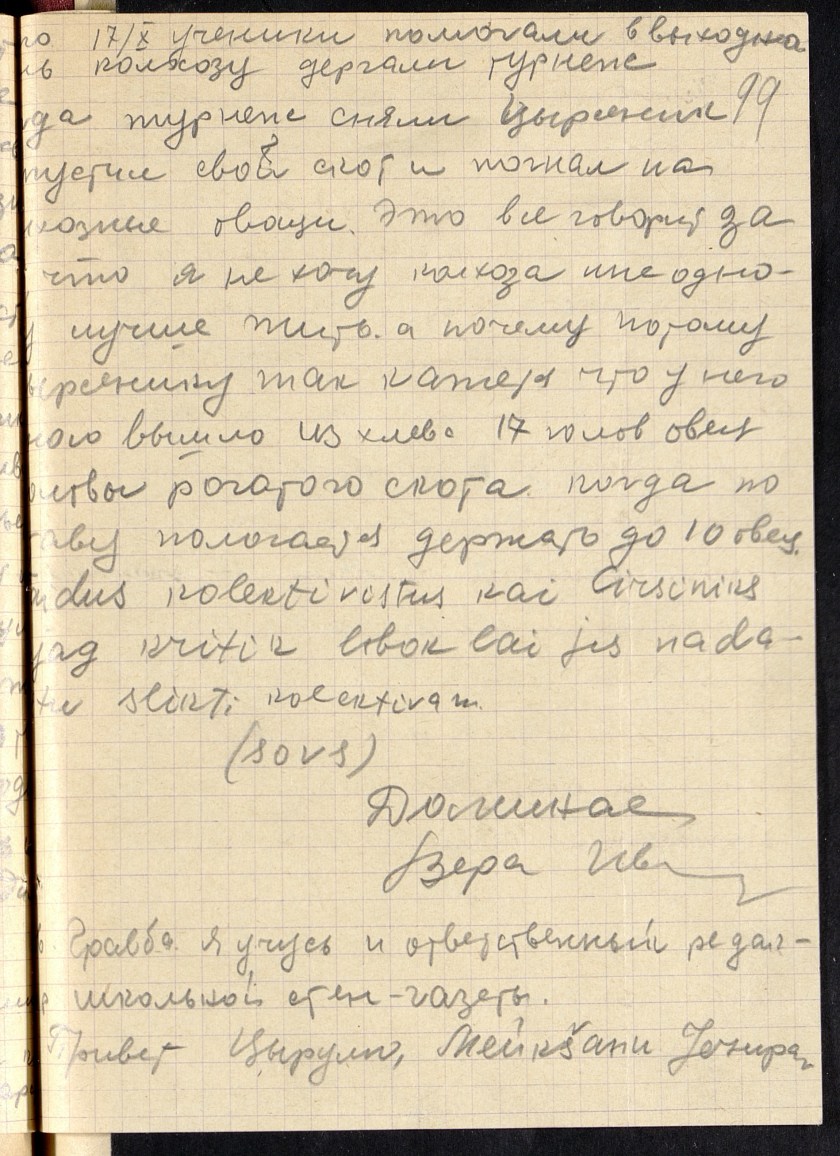 го 17/X ученики помогали в выходно
нь колхозу дергали турнепс
да турнепс сняли Цырсеник 99
пустил свой скот и погнал на
хозные овощи. Это все говорит за
что я не хочу колхоза мне одно-
у лучше жить. а почему потому
ырсенику так кажется что у него
ного вышло из хлева 17 голов овец
рогатого скота. когда по
тву пологается держать до 10 овец.
dus kolektivistus kai Cirsiniks
jag kritik labok lai jis nada-
slikti kolektivam.
(sovs)
Вера Ив
Гравба. я учусь и ответственный редак-
школьной стен-газеты.
Привет Цырулю, Мейкšани